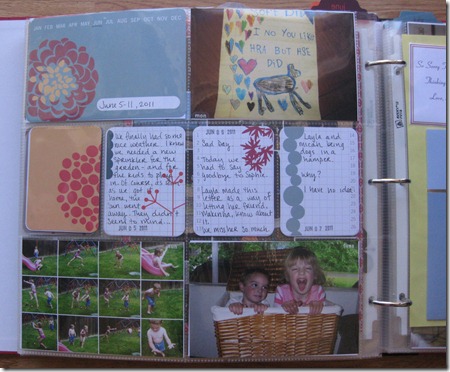 JAN FEB MAR APR MAY JUN JUL AUG SEP OCT NOV DEC
June 5-11, 2011
I NO YOU LIKE
HRA BUT HGE
DID
We finally had some
nice weather. I knew
we needed a new
sprinkler for the
garden - and for
the kids to play
in. Of course, as soon
as we got it
home, the
sun went
away. They didn't
seem to mind...
JUN 05 2011
JUN 06 2011
Sad Day.
Today we
had to say
Goodbye to Sophie.
Layla made this
letter as a way of
letting her friend,
Makenna, know about
it.
We miss her so much.
Layla and
Micah being
dogs in a
hamper.
Why?
I have no idea.
JUN 07 2011
So Sorry
Thinking
Love,